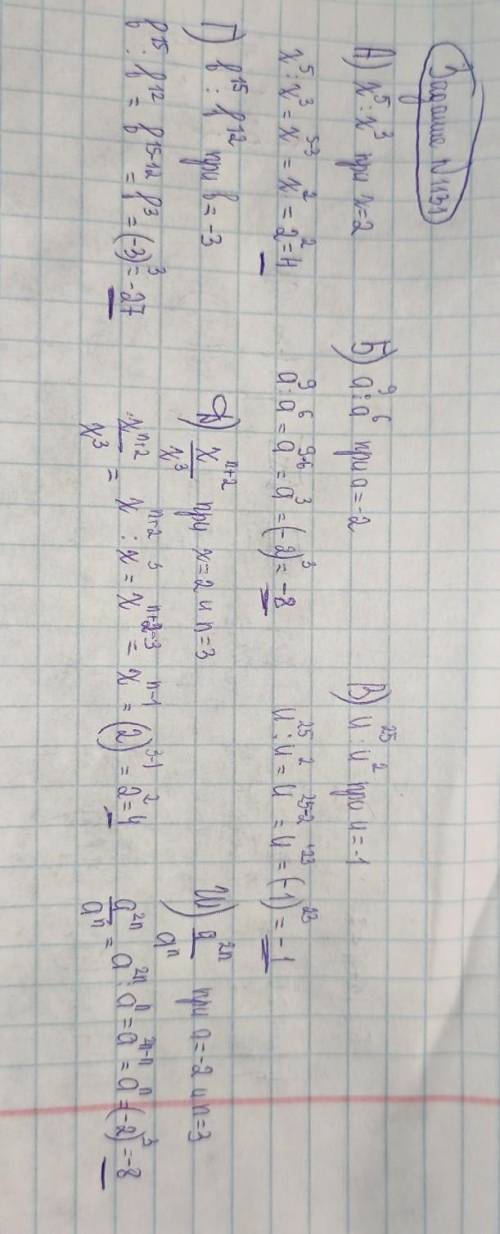 Задание №1131
А) x⁵:x³ при x=2
x⁵:x³=x⁵⁻³=x²=2²=4
Б) a⁹:a⁶ при a=-2
a⁹:a⁶=a⁹⁻⁶=a³=(-2)³=-8
В) u²⁵:u² при u=-1
u²⁵:u²=u²⁵⁻²=u²³=(-1)²³=-1
Г) b¹⁵:b¹² при b=-3
b¹⁵:b¹²=b¹⁵⁻¹²=b³=(-3)³=-27
Д) xⁿ⁺²/x³ при x=2 и n=3
xⁿ⁺²/x³=xⁿ⁺²:x³=xⁿ⁺²⁼³=xⁿ⁻¹=(2)³⁻¹=2²=4
a²ⁿ/aⁿ при a=-2 и n=3
a²ⁿ/aⁿ=a²ⁿ:aⁿ=a²ⁿ⁻ⁿ=aⁿ=(-2)³=-8